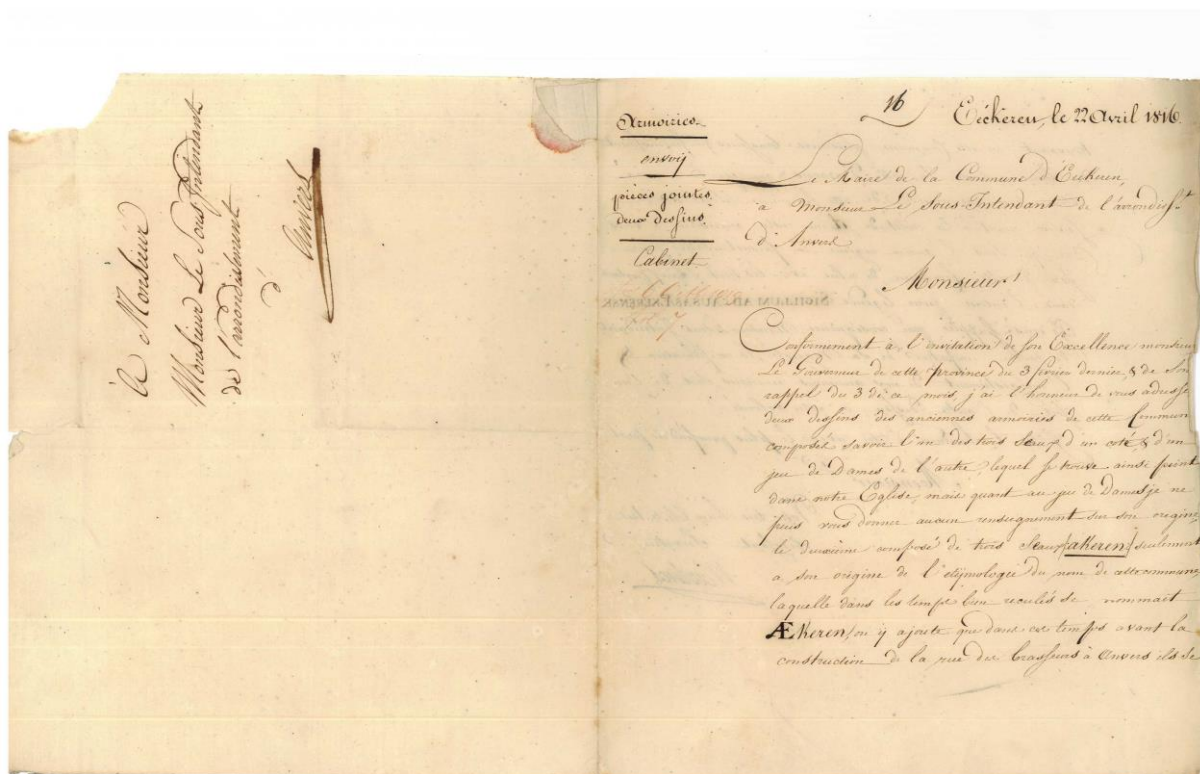 à Monsieur
Monsieur Le Sous Intendant
de l'arrondissement
d'
Anvers
16
Eeckeren, le 22 Avril 1816.
Armoiries
envoij
pièces jointes
deux dessins
Cabinet
Le Maire de la Commune d'Eeckeren,
à Monsieur Le Sous-Intendant de l'arrondisst
d'Anvers
SIGILLUM
Monsieur!
Conformement à l'invitation de son Excellence monsieur
Le Gouverneur de cette province du 3 fevrier dernier, & de son
rappel du 3 de ce mois, j'ai l'honneur de vous adresse
deux dessins des anciennes armoiries de cette Commun
composés savoir l'un des trois seaux d'un coté, & d'un
jeu de Dames de l'autre, lequel se trouve ainsi peint
dans notre Eglise, mais quant au jeu de Dames je ne
puis vous donner aucun renseignement sur son origine
le deuxième composé de trois seaux (akeren) seulement
a son origine de l'etijmologie du nom de cette commune,
laquelle dans les temps bien reculés se nommait
ÆKeren/on y ajoute que dans ces temps avant la
construction de la rue des brasseurs à Anvers ils se